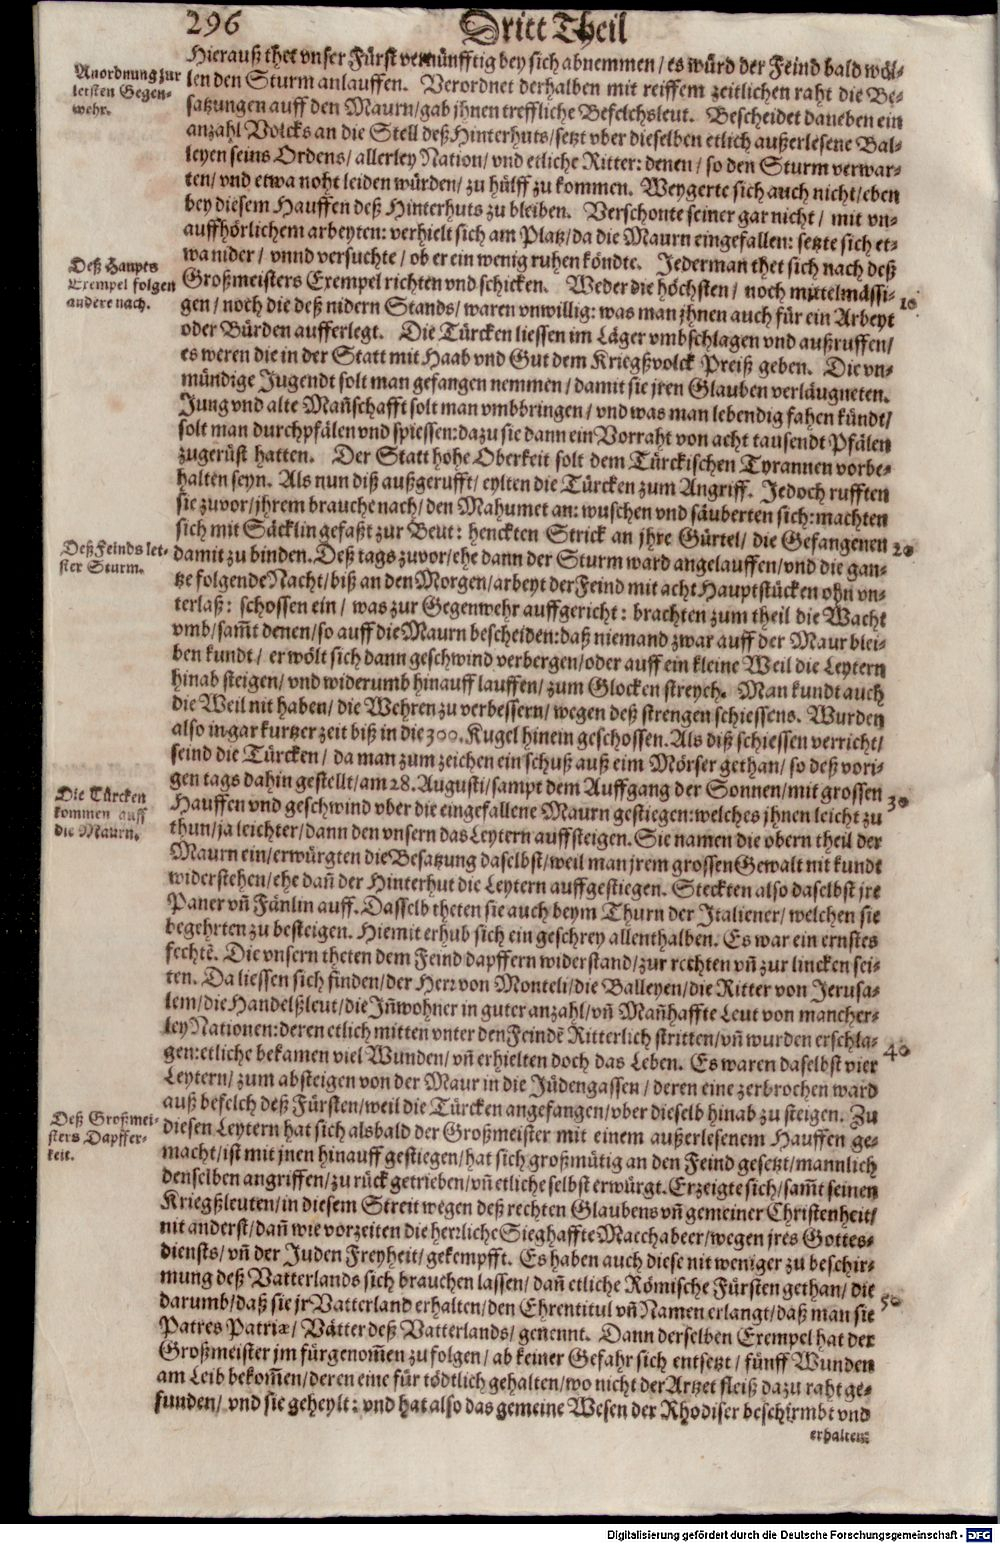 296
Dritt Theil
Hierauß thet vnser Fürst vernünfftig bey sich abnemmen / es würd der Feind bald wöl-
Anordnung zur
letsten Gegen-
wehr.
len den Sturm anlauffen. Verordnet derhalben mit reiffem zeitlichen raht die Be-
satzungen auff den Maurn / gab jhnen treffliche Befelchsleut. Bescheidet daneben ein
anzahl Volcks an die Stell deß Hinterhuts / setzt vber dieselben etlich außerlesene Bal-
leyen seins Ordens / allerley Nation / vnd etliche Ritter: denen / so den Sturm verwar-
ten / vnd etwa noht leiden würden / zu hülff zu kommen. Weygerte sich auch nicht / eben
bey diesem Hauffen deß Hinterhuts zu bleiben. Verschonte seiner gar nicht / mit vn-
auffhörlichem arbeyten: verhielt sich am Platz / da die Maurn eingefallen: setzte sich et-
wa nider / vnnd versuchte / ob er ein wenig ruhen köndte. Jederman thet sich nach deß
Deß Haupts
Exempel folgen
andere nach.
Großmeisters Exempel richten vnd schicken. Weder die höchsten / noch mittelmässi-
gen / noch die deß nidern Stands / waren vnwillig: was man jhnen auch für ein Arbeyt
10
oder Bürden aufferlegt. Die Türcken liessen im Läger vmbschlagen vnd außruffen /
es weren die in der Statt mit Haab vnd Gut dem Kriegßvolck Preiß geben. Die vn-
mündige Jugendt solt man gefangen nemmen / damit sie jren Glauben verläugneten.
Jung vnd alte Mañschafft solt man vmbbringen / vnd was man lebendig fahen kündt /
solt man durchpfälen vnd spiessen: dazu sie dann ein Vorraht von acht tausendt Pfälen
zugerüst hatten. Der Statt hohe Oberkeit solt dem Türckischen Tyrannen vorbe-
halten seyn. Als nun diß außgerufft / eylten die Türcken zum Angriff. Jedoch rufften
sie zuvor / jhrem brauche nach / den Mahumet an: wuschen vnd säuberten sich: machten
sich mit Säcklin gefaßt zur Beut: henckten Strick an jhre Gürtel / die Gefangenen
20
Deß Feinds let-
ster Sturm.
damit zu binden. Deß tags zuvor / ehe dann der Sturm ward angelauffen / vnd die gan-
tze folgende Nacht / biß an den Morgen / arbeyt der Feind mit acht Hauptstücken ohn vn-
terlaß: schossen ein / was zur Gegenwehr auffgericht: brachten zum theil die Wacht
vmb / sam̃t denen / so auff die Maurn bescheiden: daß niemand zwar auff der Maur blei-
ben kundt / er wölt sich dann geschwind verbergen / oder auff ein kleine Weil die Leytern
hinab steigen / vnd widerumb hinauff lauffen / zum Glocken streych. Man kundt auch
die Weil nit haben / die Wehren zu verbessern / wegen deß strengen schiessens. Wurden
also in gar kurtzer zeit biß in die 300. Kugel hinein geschossen. Als diß schiessen verricht /
seind die Türcken / da man zum zeichen ein schuß auß eim Mörser gethan / so deß vori-
gen tags dahin gestellt / am 28. Augusti / sampt dem Auffgang der Sonnen / mit grossen
30
Die Türcken
kommen auff
die Maurn.
Hauffen vnd geschwind vber die eingefallene Maurn gestiegen: welches jhnen leicht zu
thun / ja leichter / dann den vnsern das Leytern auffsteigen. Sie namen die obern theil der
Maurn ein / erwürgten die Besatzung daselbst / weil man jrem grossen Gewalt nit kundt
widerstehen / ehe dañ der Hinterhut die Leytern auffgestiegen. Steckten also daselbst jre
Paner vñ Fänlin auff. Dasselb theten sie auch beym Thurn der Italiener / welchen sie
begehrten zu besteigen. Hiemit erhub sich ein geschrey allenthalben. Es war ein ernstes
fechtẽ. Die vnsern theten dem Feind dapffern widerstand / zur rechten vñ zur lincken sei-
ten. Da liessen sich finden / der Herr von Monteli / die Balleyen / die Ritter von Jerusa-
lem / die Handelßleut / die Jñwohner in guter anzahl / vñ Mañhaffte Leut von mancher-
ley Nationen: deren etlich mitten vnter den Feindẽ Ritterlich stritten / vñ wurden erschla-
gen: etliche bekamen viel Wunden / vñ erhielten doch das Leben. Es waren daselbst vier
40
Leytern / zum absteigen von der Maur in die Jüdengassen / deren eine zerbrochen ward
auß befelch deß Fürsten / weil die Türcken angefangen / vber dieselb hinab zu steigen. Zu
Deß Großmei-
sters Dapffer-
keit.
diesen Leytern hat sich alsbald der Großmeister mit einem außerlesenem Hauffen ge-
macht / ist mit jnen hinauff gestiegen / hat sich großmütig an den Feind gesetzt / mannlich
denselben angriffen / zu rück getrieben / vñ etliche selbst erwürgt. Erzeigte sich / sam̃t seinen
Kriegßleuten / in diesem Streit wegen deß rechten Glaubens vñ gemeiner Christenheit /
nit anderst / dañ wie vorzeiten die herrliche Sieghaffte Macchabeer / wegen jres Gottes-
diensts / vñ der Juden Freyheit / gekempfft. Es haben auch diese nit weniger zu beschir-
mung deß Vatterlands sich brauchen lassen / dañ etliche Römische Fürsten gethan / die
50
darumb / daß sie jr Vatterland erhalten / den Ehrentitul vñ Namen erlangt / daß man sie
Patres Patriæ / Vätter deß Vatterlands / genennt. Dann derselben Exempel hat der
Großmeister jm fürgenom̃en zu folgen / ab keiner Gefahr sich entsetzt / fünff Wunden
am Leib bekom̃en / deren eine für tödtlich gehalten / wo nicht der Artzet fleiß dazu raht ge-
funden / vnd sie geheylt: vnd hat also das gemeine Wesen der Rhodiser beschirmbt vnd
erhalten:
Digitalisierung gefördert durch die Deutsche Forschungsgemeinschaft - DFG